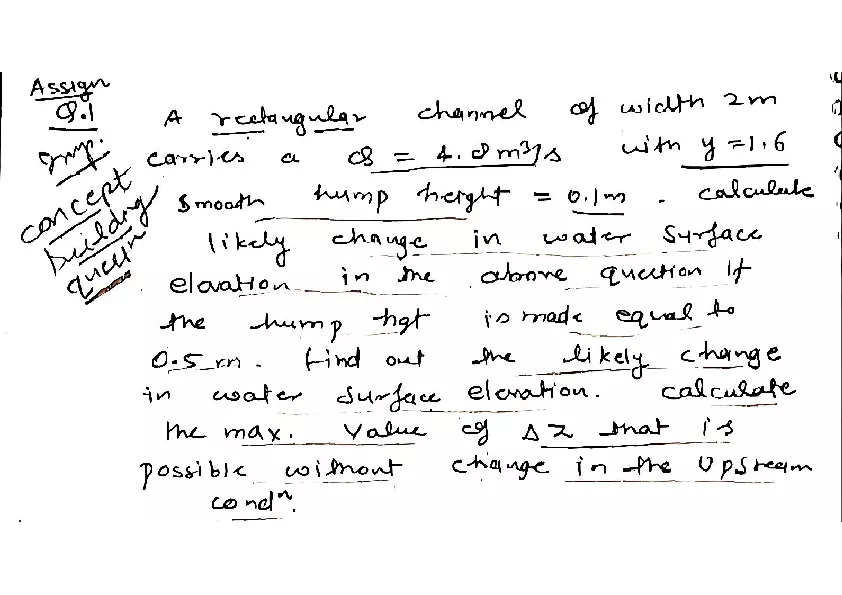 Assign
Q.1
Imp.
concept
building
question
A rectangular channel of width 2m
carries a Q = 4.8 m³/s with y = 1.6
smooth hump height = 0.1m . calculate
likely change in water surface
elavation in the above question if
the hump hgt is made equal to
0.5 m . find out the likely change
in water surface elevation. calculate
the max. value of ΔZ that is
possible without change in the upstream
condⁿ.